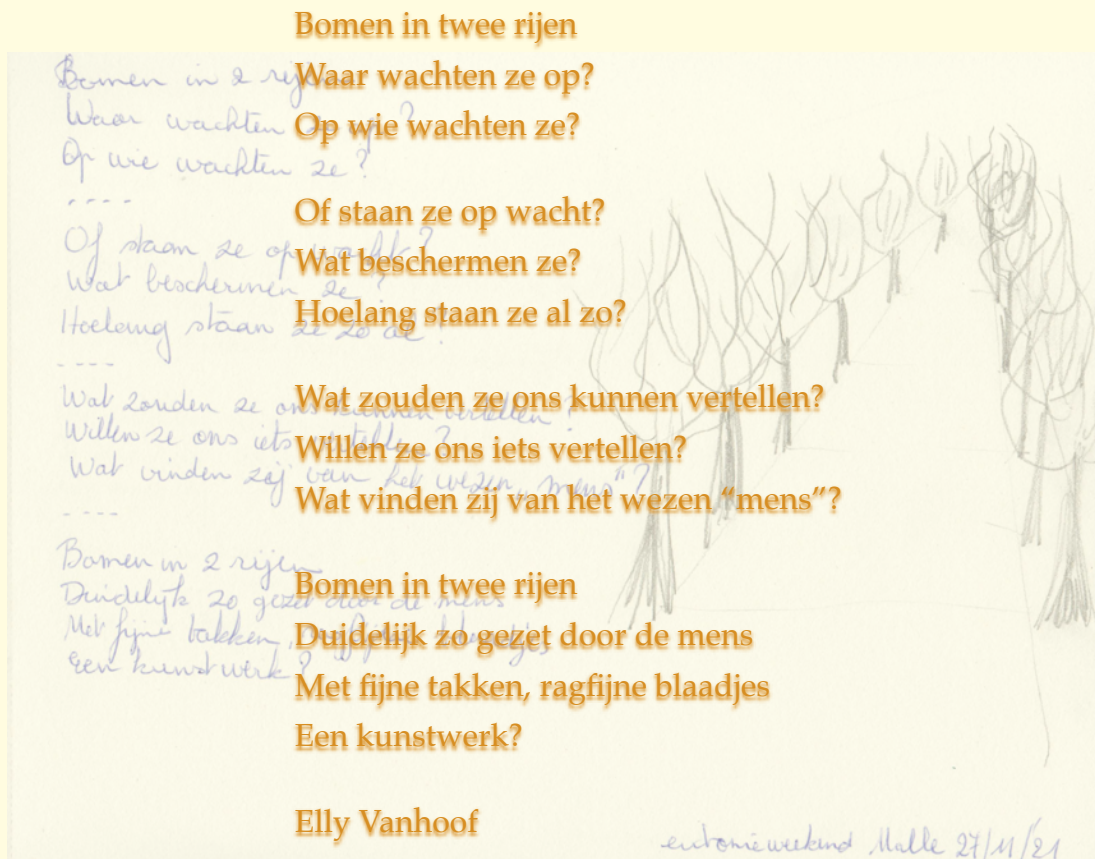 Bomen in twee rijen
Waar wachten ze op?
Op wie wachten ze?
Of staan ze op wacht?
Wat beschermen ze?
Hoelang staan ze al zo?
Wat zouden ze ons kunnen vertellen?
Willen ze ons iets vertellen?
Wat vinden zij van het wezen “mens”?
Bomen in twee rijen
Duidelijk zo gezet door de mens
Met fijne takken, ragfijne blaadjes
Een kunstwerk?
Elly Vanhoof
Bomen in 2 rijen
Waar wachten ze op?
Op wie wachten ze?
----
Of staan ze op wacht?
Wat beschermen ze?
Hoelang staan ze zo al?
----
Wat zouden ze ons kunnen vertellen?
Willen ze ons iets vertellen?
Wat vinden zij van het wezen „mens"?
----
Bomen in 2 rijen
Duidelijk zo gezet door de mens
Met fijne takken, ragfijne blaadjes
Een kunstwerk?
eutonieweekend Malle 27/11/21